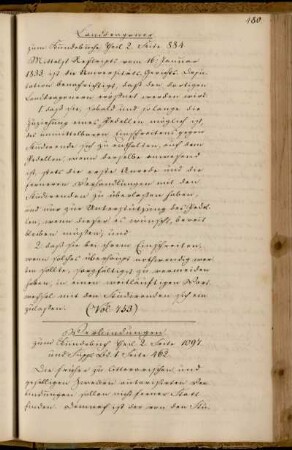 180.
Landdragoner
zum Hündebuche Theil 2. Seite 884
Mittelst Rescripts vom 16. Januar
1833 ist die Universitäts-Gerichts-Depu-
tation benachrichtigt, daß den dortigen
Landdragoner eröffnet worden sey:
1. daß sie, sobald und solange die
Zuziehung eines Pedellen möglich ist,
des unmittelbaren Einschreitens gegen
Studirende sich zu enthalten, auch dem
Pedellen, wenn derselbe anwesend
ist, stets die erste Anrede und die
ferneren Verhandlungen mit den
Studirenden zu überlassen haben,
und nur zur Unterstützung des Pedel-
len, wenn dieser es wünscht, bereit
bleiben müssen; und
2. daß sie bei ihrem Einschreiten,
wenn solches überhaupt nothwendig wer-
den sollte, sorgfältigst zu vermeiden
haben, in einen weitläuftigen Wort-
wechsel mit den Studirenden sich ein-
zulassen. (Vol. 753)
Verbindungen
zum Hündebuch Theil 2. Seite 1097
und Suppl. Bd. 1 Seite 462.
Die früher zu litterarischen und
geselligen Zwecken autorisirten Ver-
bindungen sollen nicht ferner Statt
finden. Demnach ist der von den Stu-